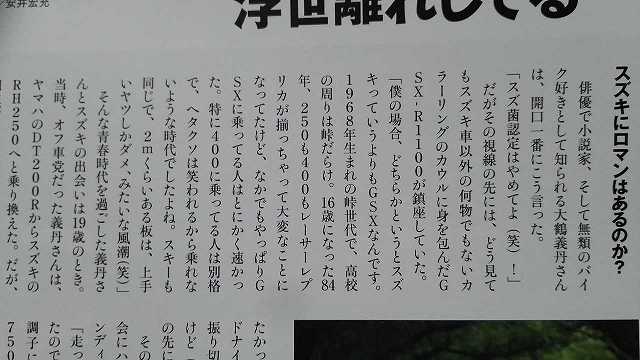 安井宏充
浮世離れしてる
スズキにロマンはあるのか?
俳優で小説家、そして無類のバイ
ク好きとして知られる大鶴義丹さん
は、開口一番にこう言った。
「スズ菌認定はやめてよ（笑）！」
だがその視線の先には、どう見て
もスズキ車以外の何物でもないカ
ラーリングのカウルに身を包んだG
SX-R1100が鎮座していた。
「僕の場合、どちらかというとスズ
キっていうよりもGSXなんです。
1968年生まれの峠世代で、高校
の周りは峠だらけ。16歳になった84
年、250も400もレーサーレプ
リカが揃っちゃって大変なことに
なってたけど、なかでもやっぱりG
SXに乗ってる人はとにかく速かっ
た。特に400に乗ってる人は別格
で、ヘタクソは笑われるから乗れな
いような時代でしたよね。スキーも
同じで、2mくらいある板は、上手
いヤツしかダメ、みたいな風潮（笑）」
そんな青春時代を過ごした義丹さ
んとスズキの出会いは19歳のとき。
当時、オフ車党だった義丹さんは、
ヤマハのDT200Rからスズキの
RH250へと乗り換えた。だが、
たかっ
ドナイ
振り切
けど
の先に
その
会にハ
ンディ
「走っ
たので
調子に
750